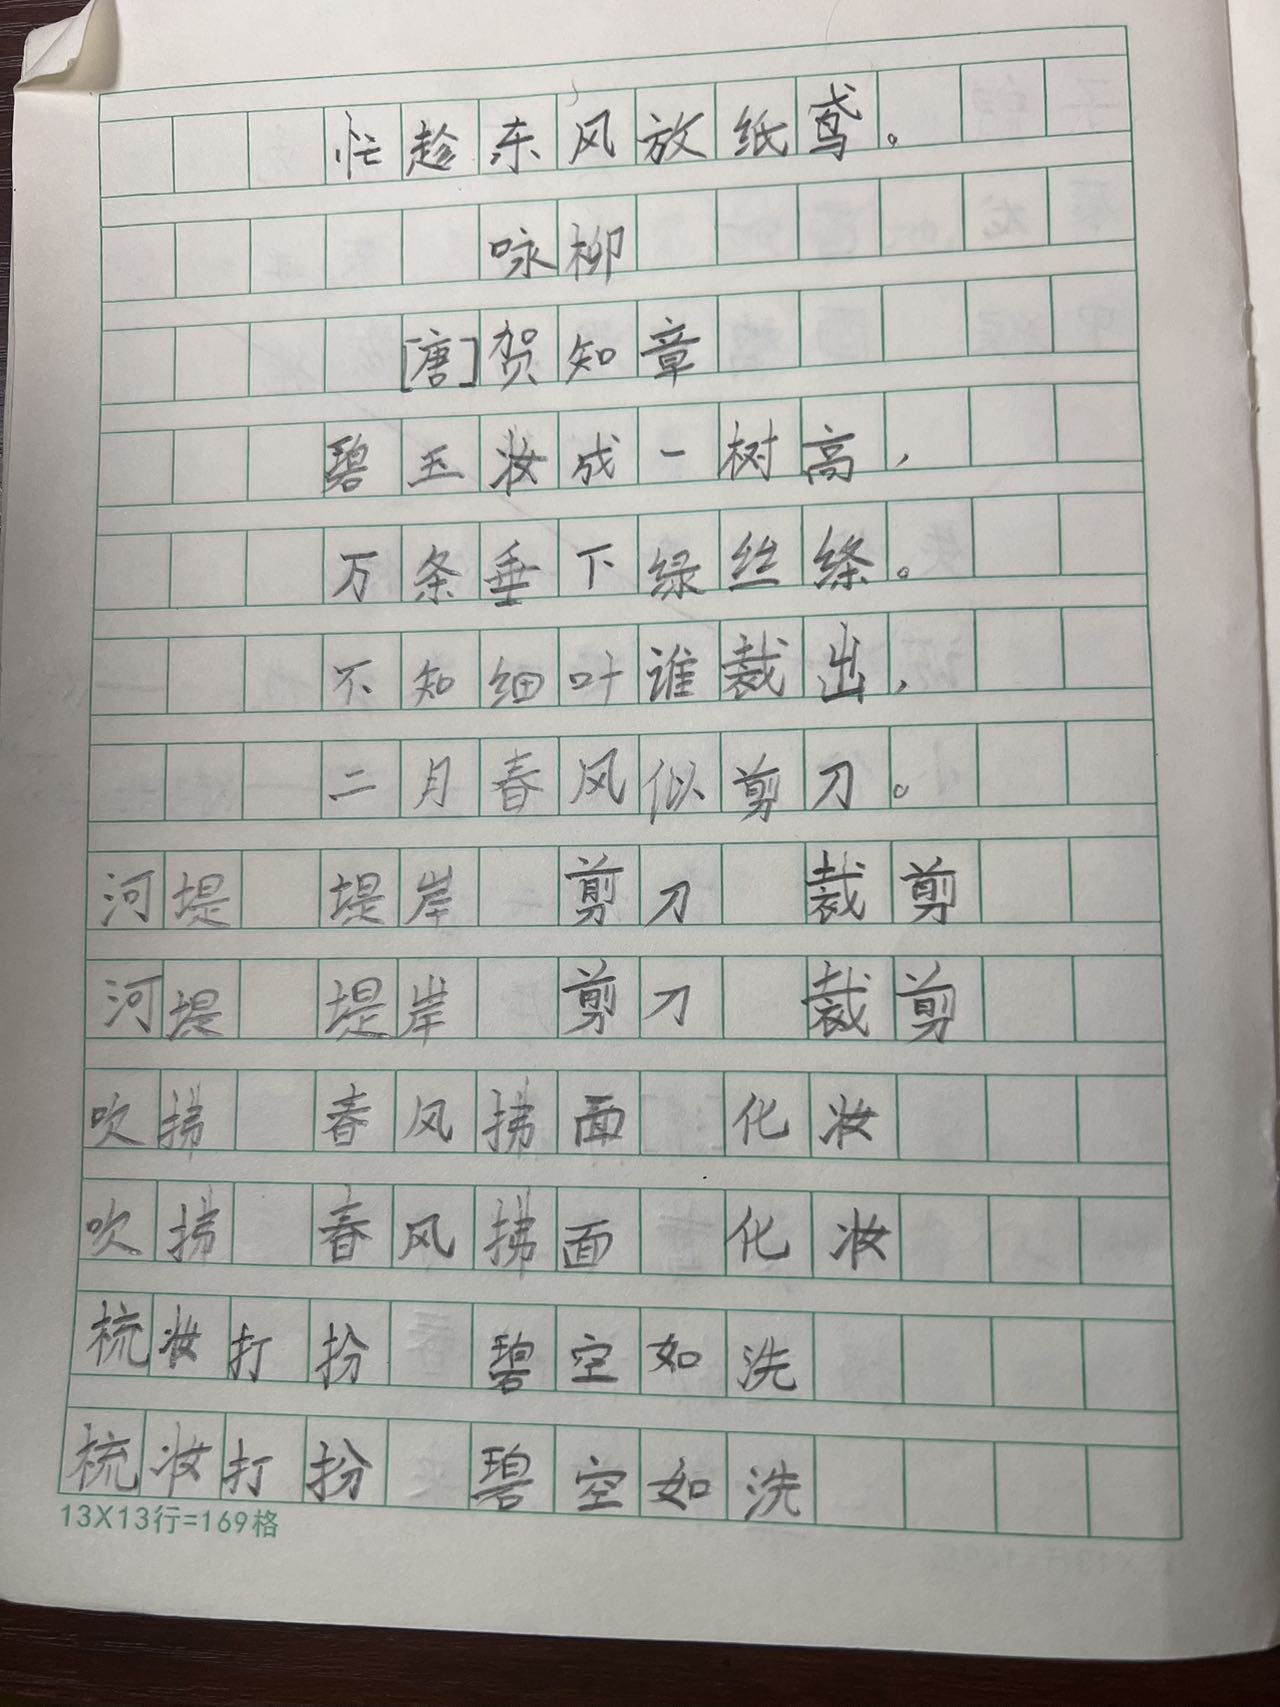 忙趁东风放纸鸢。
咏柳
[唐]贺知章
碧玉妆成一树高，
万条垂下绿丝绦。
不知细叶谁裁出，
二月春风似剪刀。
河堤 堤岸 剪刀 裁剪
河堤 堤岸 剪刀 裁剪
吹拂 春风拂面 化妆
吹拂 春风拂面 化妆
梳妆打扮 碧空如洗
梳妆打扮 碧空如洗
13X13行=169格